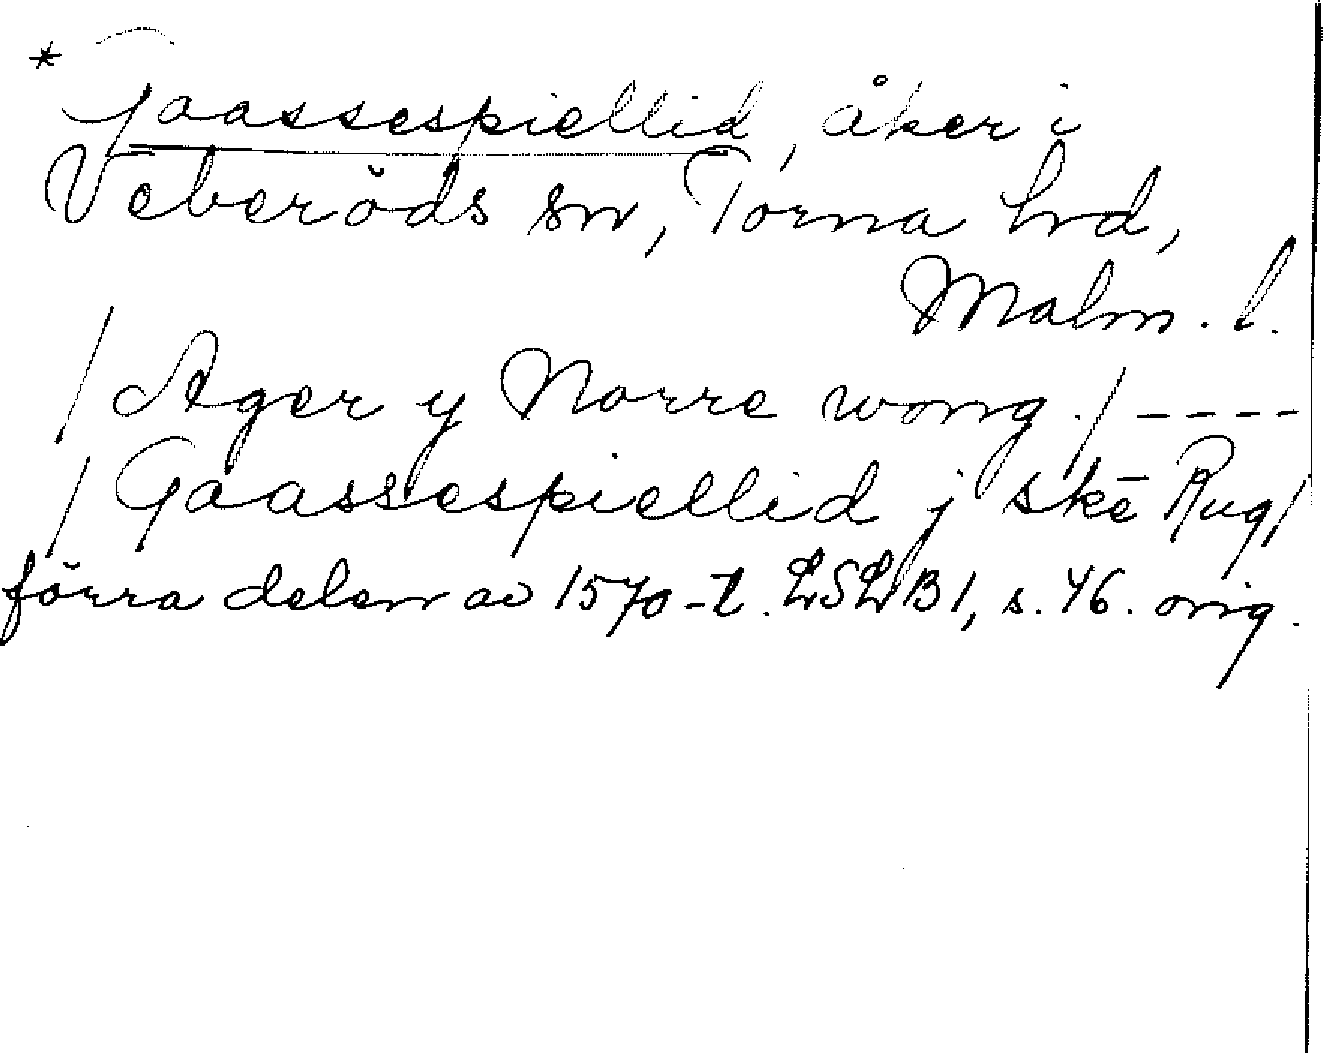 * Gaassespiellid, åker i
Veberöds sn, Torna hd,
Malm. l.
/ Ager y Norre wong. / ----
/ Gaassespiellid j skē Rug /
förra delen av 1570-t. LSLB1, s. 46. orig.